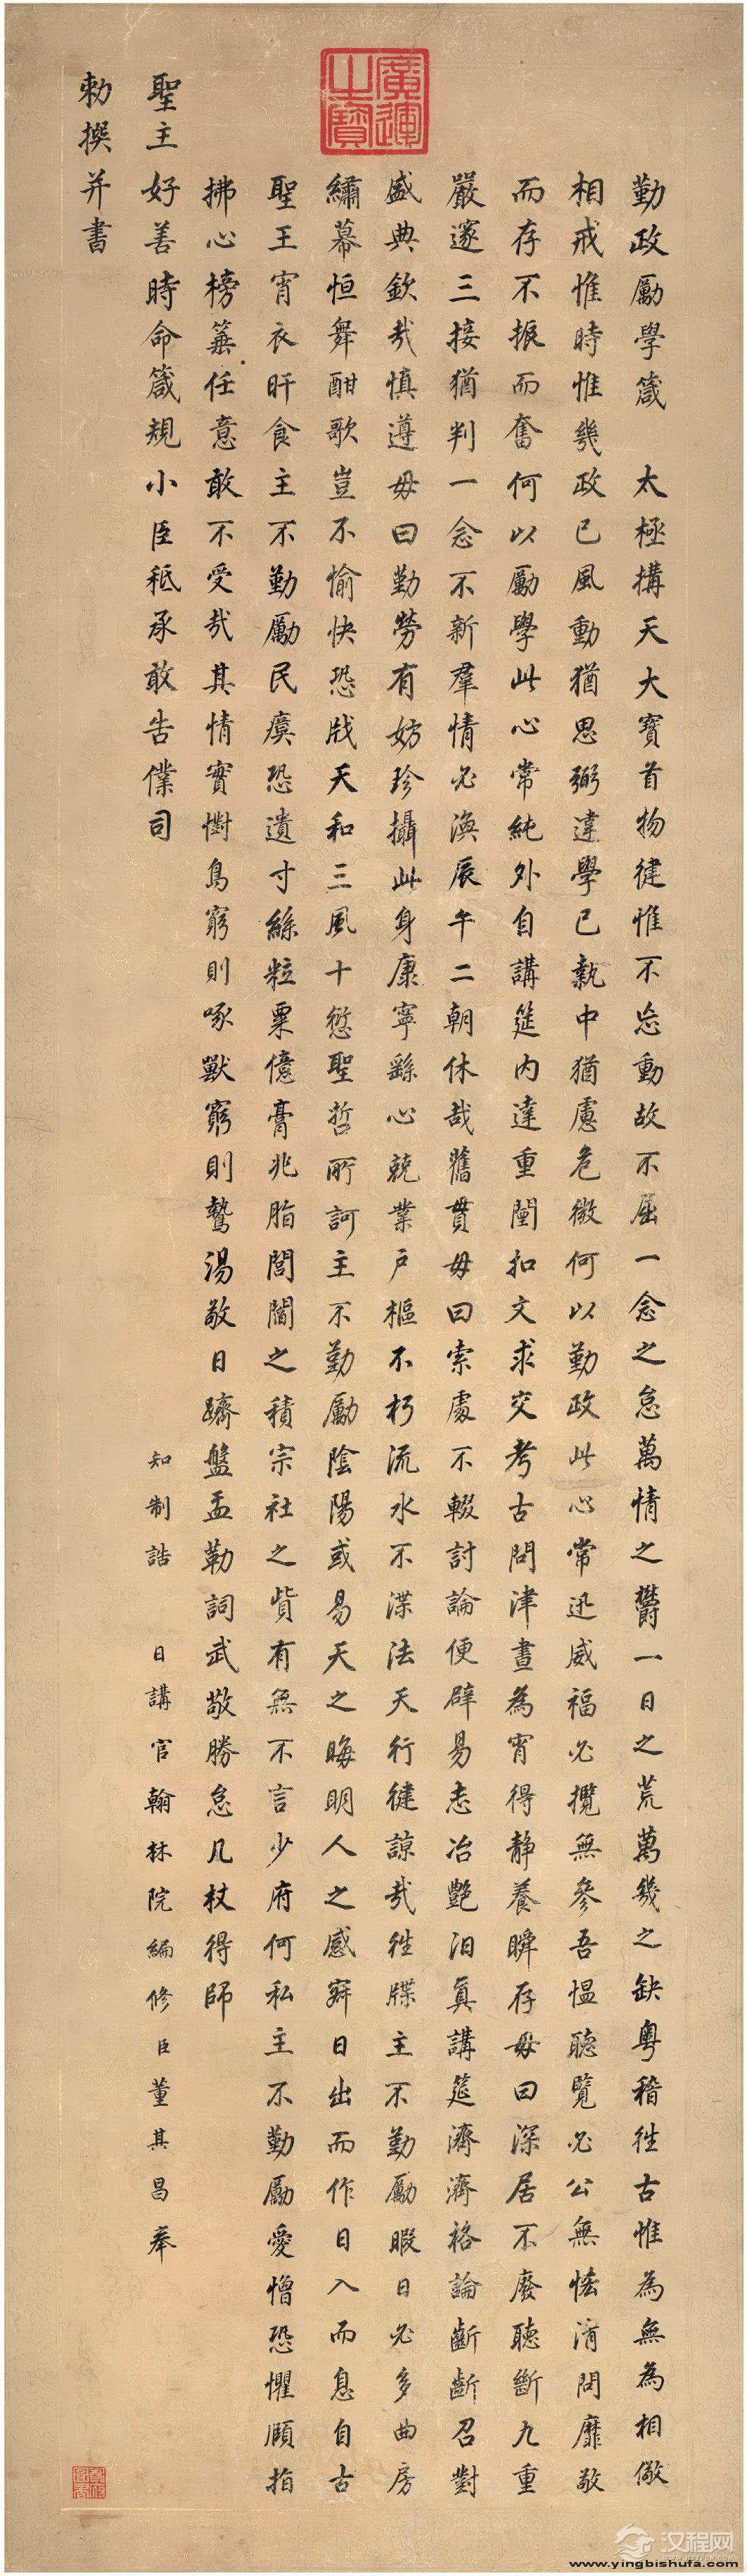 廣運之寶
勤政勵學箴 太極搆天大寶首物健惟不忘動故不屈一念之怠萬情之欝一日之荒萬幾之缺粵稽往古惟為無為相儆
相戒惟時惟幾政已風動猶思弼違學已執中猶慮危微何以勤政此心常迅威福必攬無參吾愠聽覽必公無恡清問靡敬
而存不振而奮何以勵學此心常純外自講筵內達重闉扣文求交考古問津晝為宵得靜養瞬存毋曰深居不廢聽斷九重
嚴邃三接猶判一念不新羣情必渙辰午二朝休哉舊貫毋曰索處不輟討論便辟易志冶艷汩真講筵濟濟格論齗齗召對
盛典欽哉慎遵毋曰勤勞有妨珍攝此身康寧繇心兢業戶樞不朽流水不渫法天行健諒哉往牒主不勤勵暇日必多曲房
繡幕恒舞酣歌豈不愉快恐戕天和三風十愆聖哲所訶主不勤勵陰陽或易天之晦明人之感寐日出而作日入而息自古
聖王宵衣旰食主不勤勵民瘼恐遺寸絲粒粟億膏兆脂閭閻之積宗社之貲有無不言少府何私主不勤勵愛憎恐懼頤指
拂心榜箠任意敢不受哉其情實懟鳥窮則啄獸窮則鷙湯敬日躋盤盂勒詞武敬勝怠几杖得師
聖主好善時命箴規小臣秪承敢告僕司 知制誥 日講官翰林院編修臣董其昌奉
勅撰并書
汉程网
www.yingbishufa.com